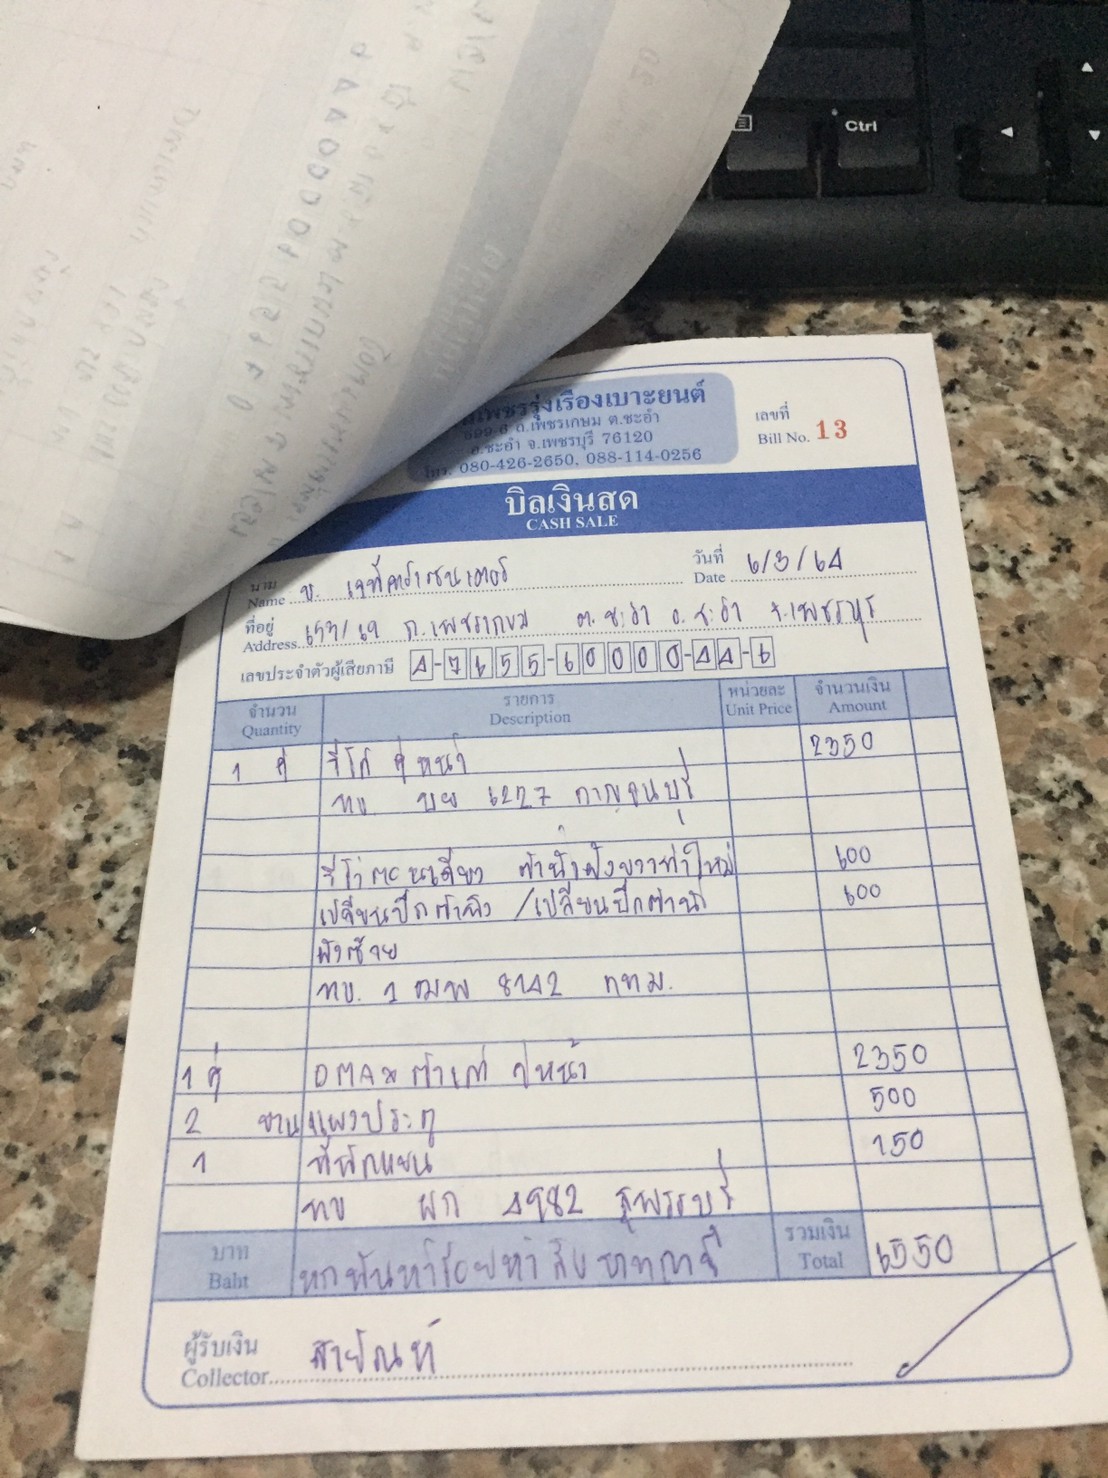 เพชรรุ่งเรืองเบาะยนต์
ถ.เพชรเกษม ต.ชะอำ
อ.ชะอำ จ.เพชรบุรี 76120
โทร. 080-426-2650, 088-114-0256
เลขที่
Bill No. 13
บิลเงินสด
CASH SALE
นาม
Name บ.
วันที่
Date 6/3/64
ที่อยู่
Address ถ.เพชรเกษม ต.ชะอำ อ.ชะอำ จ.เพชรบุรี
เลขประจำตัวผู้เสียภาษี 4-7655-60000-44-6
จำนวน Quantity รายการ Description หน่วยละ Unit Price จำนวนเงิน Amount
1 คู่ รีโว่ คู่หน้า 2350
ทบ บย 6227 กาญจนบุรี
รีโว่ตอนเดียว ทำใหม่ 600
เปลี่ยนปีก /เปลี่ยนปีก 600
ฝั่งซ้าย
ทบ. 1 ฒพ 8142 กทม.
1 คู่ DMAX ตัวเก่า คู่หน้า 2350
2 บาน แผงประตู 500
1 ที่พักแขน 150
ทบ ผก 4982 สุพรรณบุรี
บาท
Baht หกพันห้าร้อยห้าสิบบาทถ้วน
รวมเงิน
Total 6550
ผู้รับเงิน
Collector สายัณห์
Ctrl